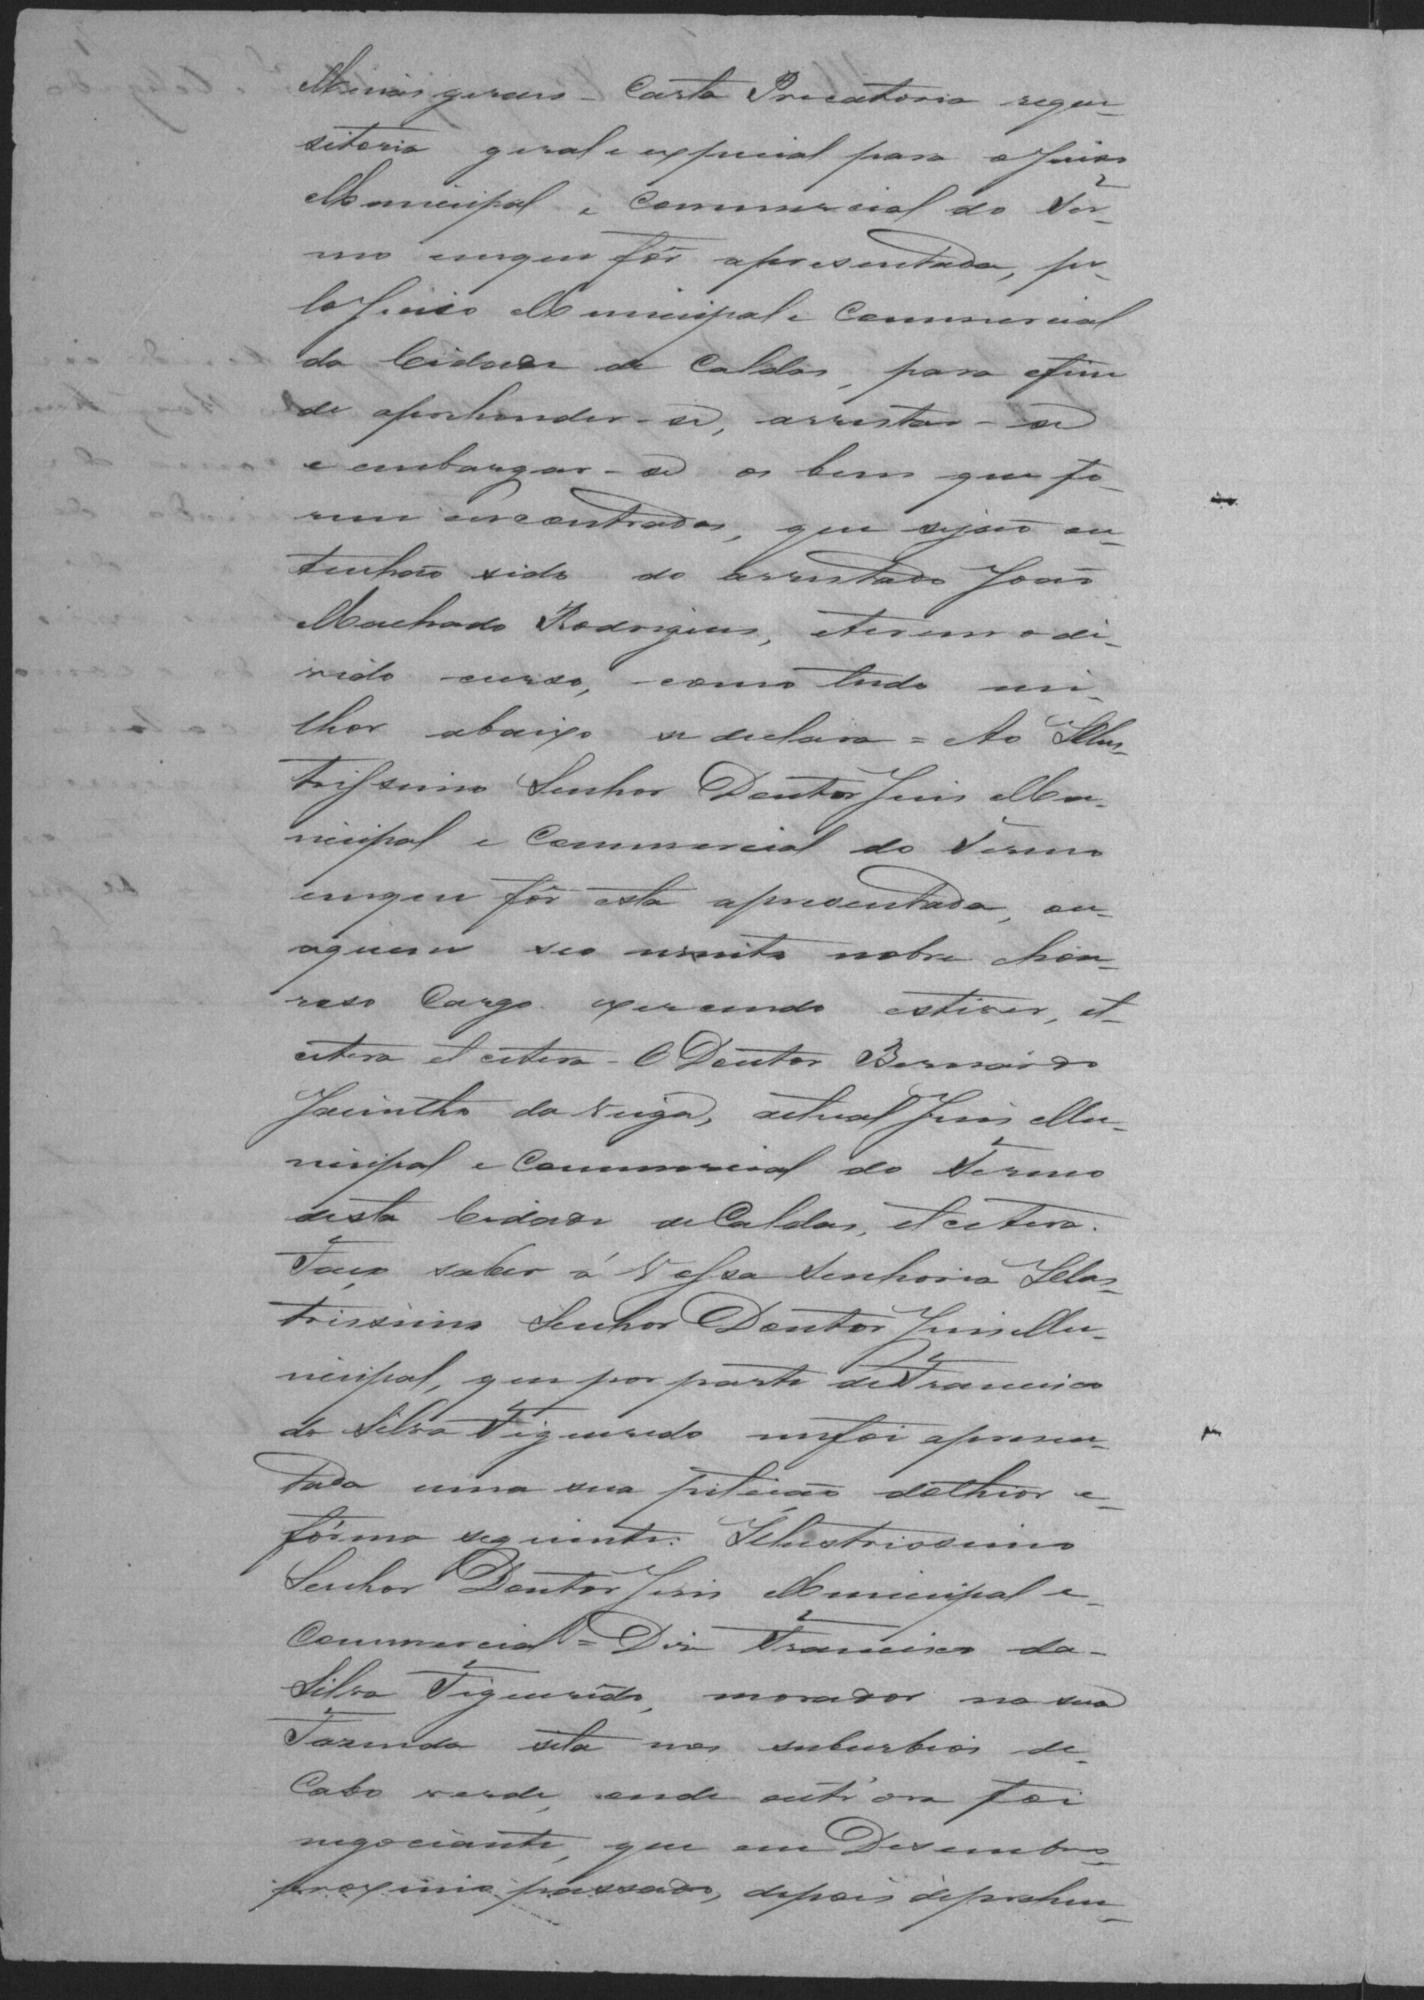 Minas geraes - Carta Precatoria requi-
sitoria geral e especial para o Juiso
Municipal e Commercial do Ter-
mo em que fôr apresentada, pe-
lo Juiso Municipal e Commercial
da Cidade de Caldas, para o fim
de aprehender-se, arrestar-se
e embargar-se os bens que fo-
rem encontrados, que sejão ou
tenhão sido do arrestado João
Machado Rodrigues, e terem o de-
vido curso, como tudo mi-
lhor abaixo se declara = Ao Illus-
trissimo Senhor Doutor Juis Mu-
nicipal e Commercial do Termo
em que fôr esta apresentada, ou
a quem seo muito nobre e hon-
roso Cargo exercendo estiver, et
cetera et cetera - O Doutor Bernardo
Jacintho da Veiga, actual Juis Mu-
nicipal e Commercial do Termo
desta Cidade de Caldas, et cetera.
Faço saber á Vossa Senhoria Illus-
trissimo Senhor Doutor Juis Mu-
nicipal, que por parte de Francisco
da Silva Figueiredo me foi apresen-
tada uma sua petição do theor e
fórma seguinte: Illustrissimo
Senhor Doutor Juis Municipal e
Commercial = Diz Francisco da
Silva Figueiredo, morador na sua
Fazenda sita nos suburbios de
Cabo verde, onde outr'ora foi
negociante, que em Desembro
proximo passado, depois de prehen-